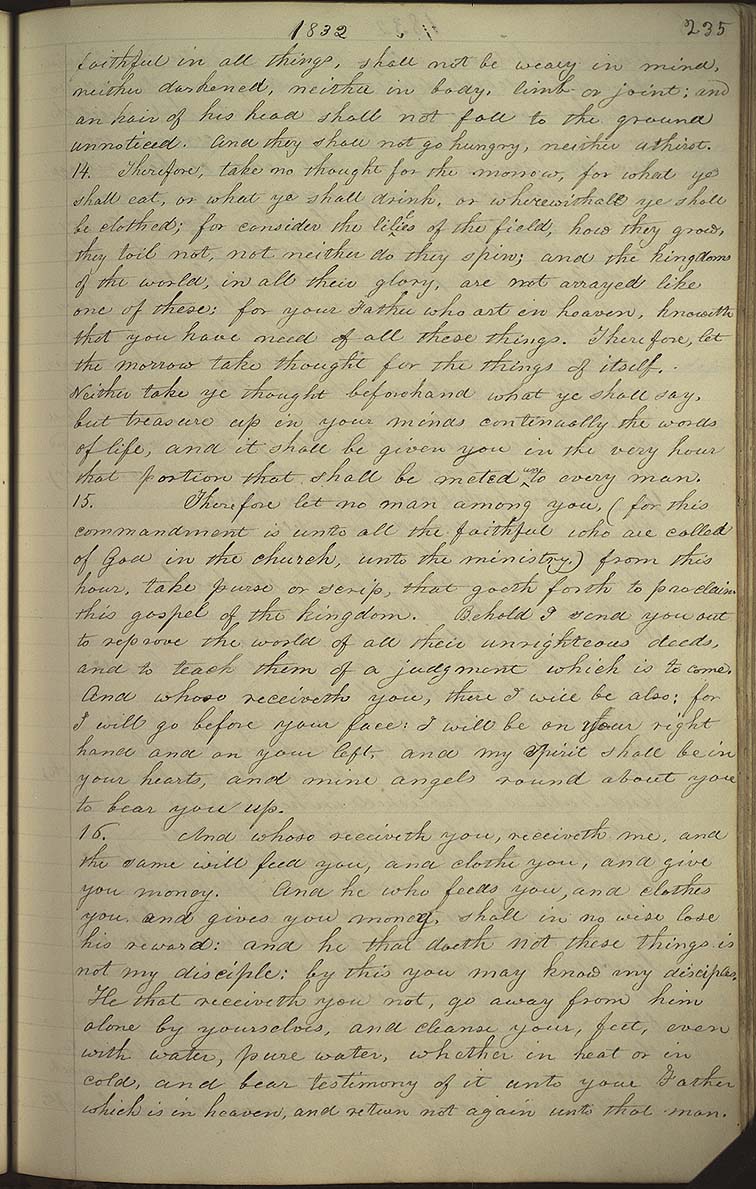 1832
235
faithful in all things, shall not be weary in mind,
neither darkened, neither in body, limb or joint; and
an hair of his head shall not fall to the ground
unnoticed. And they shall not go hungry, neither athirst.
14. Therefore, take no thought for the morrow, for what ye
shall eat, or what ye shall drink, or wherewithall ye shall
be clothed; for consider the lilies of the field, how they grow,
they toil not, not neither do they spin; and the kingdoms
of the world, in all their glory, are not arrayed like
one of these: for your Father who art in heaven, knoweth
that you have need of all these things. Therefore, let
the morrow take thought for the things of itself.
Neither take ye thought beforehand what ye shall say,
but treasure up in your minds continually the words
of life, and it shall be given you in the very hour
that portion that shall be meted unto every man.
15. Therefore let no man among you, (for this
commandment is unto all the faithful who are called
of God in the church, unto the ministry,) from this
hour, take purse or scrip, that goeth forth to proclaim
this gospel of the kingdom. Behold I send you out
to reprove the world of all their unrighteous deeds,
and to teach them of a judgment which is to come.
And whoso receiveth you, there I will be also; for
I will go before your face: I will be on your right
hand and on your left, and my Spirit shall be in
your hearts, and mine angels round about you
to bear you up.
16. And whoso receiveth you, receiveth me, and
the same will feed you, and clothe you, and give
you money. And he who feeds you, and clothes
you and gives you money, shall in no wise lose
his reward: and he that doeth not these things is
not my disciple: by this you may know my disciples.
He that receiveth you not, go away from him
alone by yourselves, and cleanse your, feet, even
with water, pure water, whether in heat or in
cold, and bear testimony of it unto your Father
which is in heaven, and return not again unto that man.